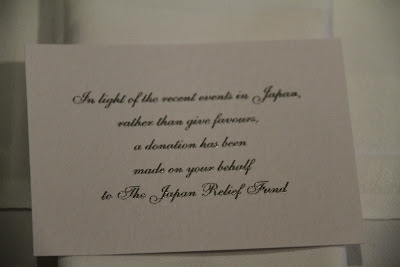 In light of the recent events in Japan,
rather than give favours,
a donation has been
made on your behalf
to The Japan Relief Fund